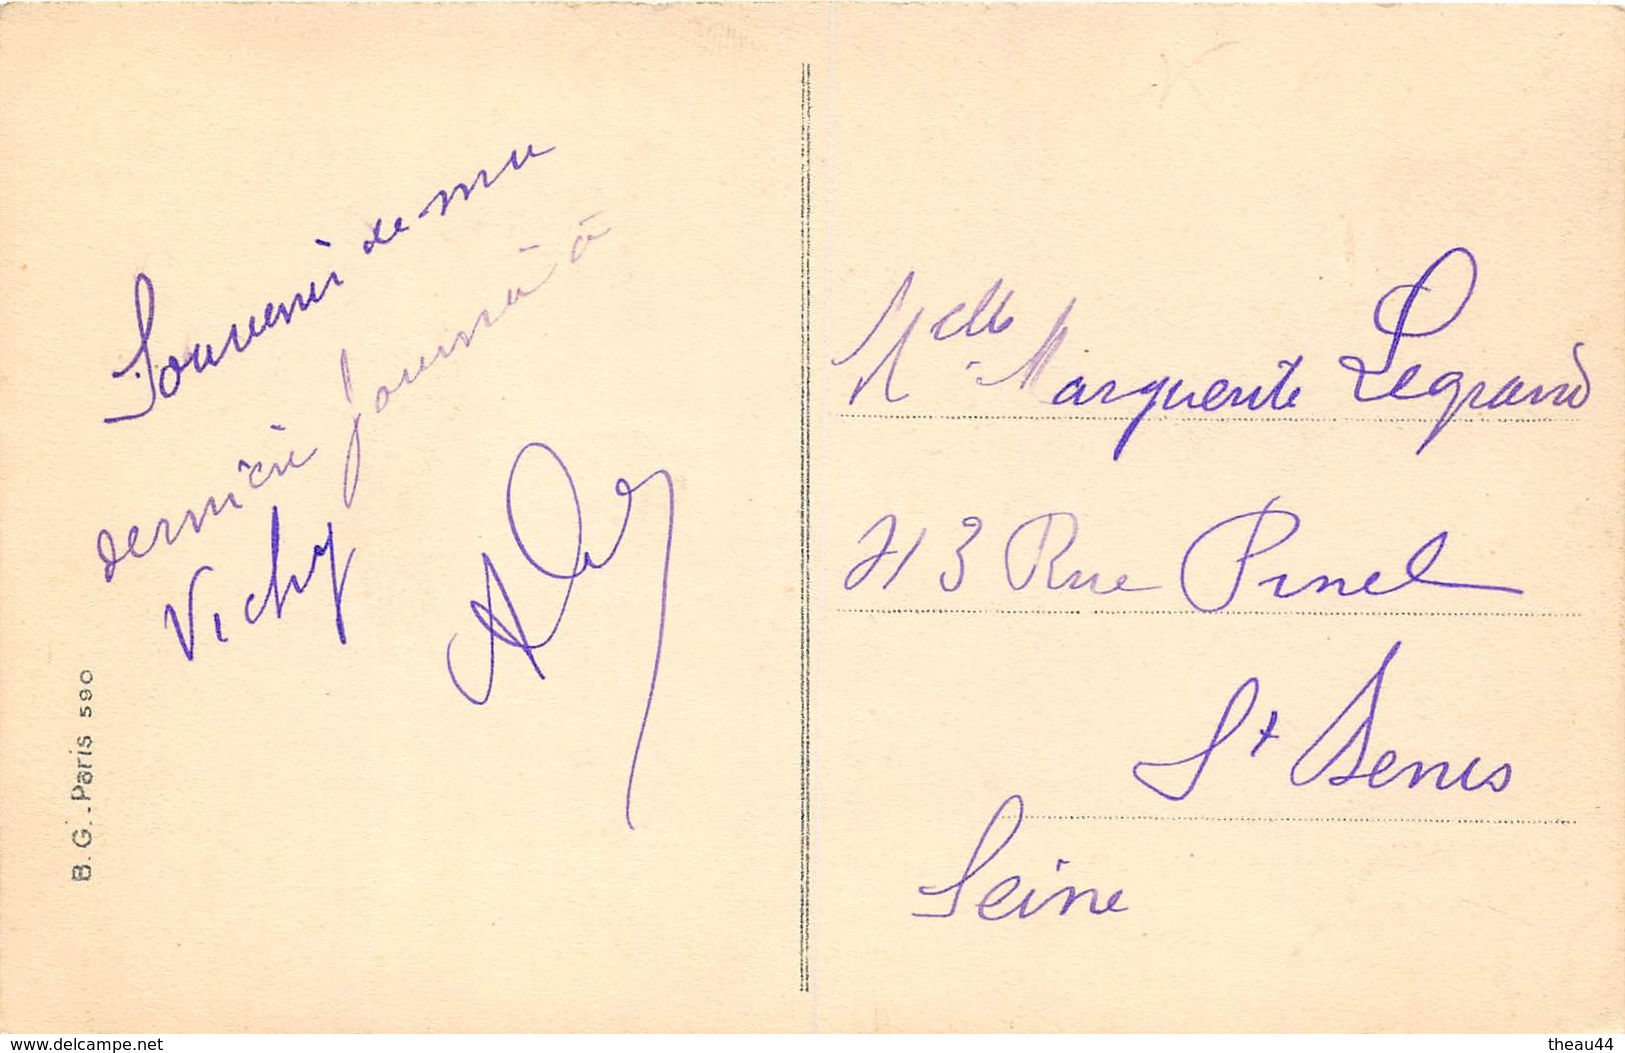 Souvenir de ma
dernière journée à
Vichy
B. G. . Paris 590
Melle Marguerite Legrand
43 Rue Pinel
St Denis
Seine
www.delcampe.net
theau44